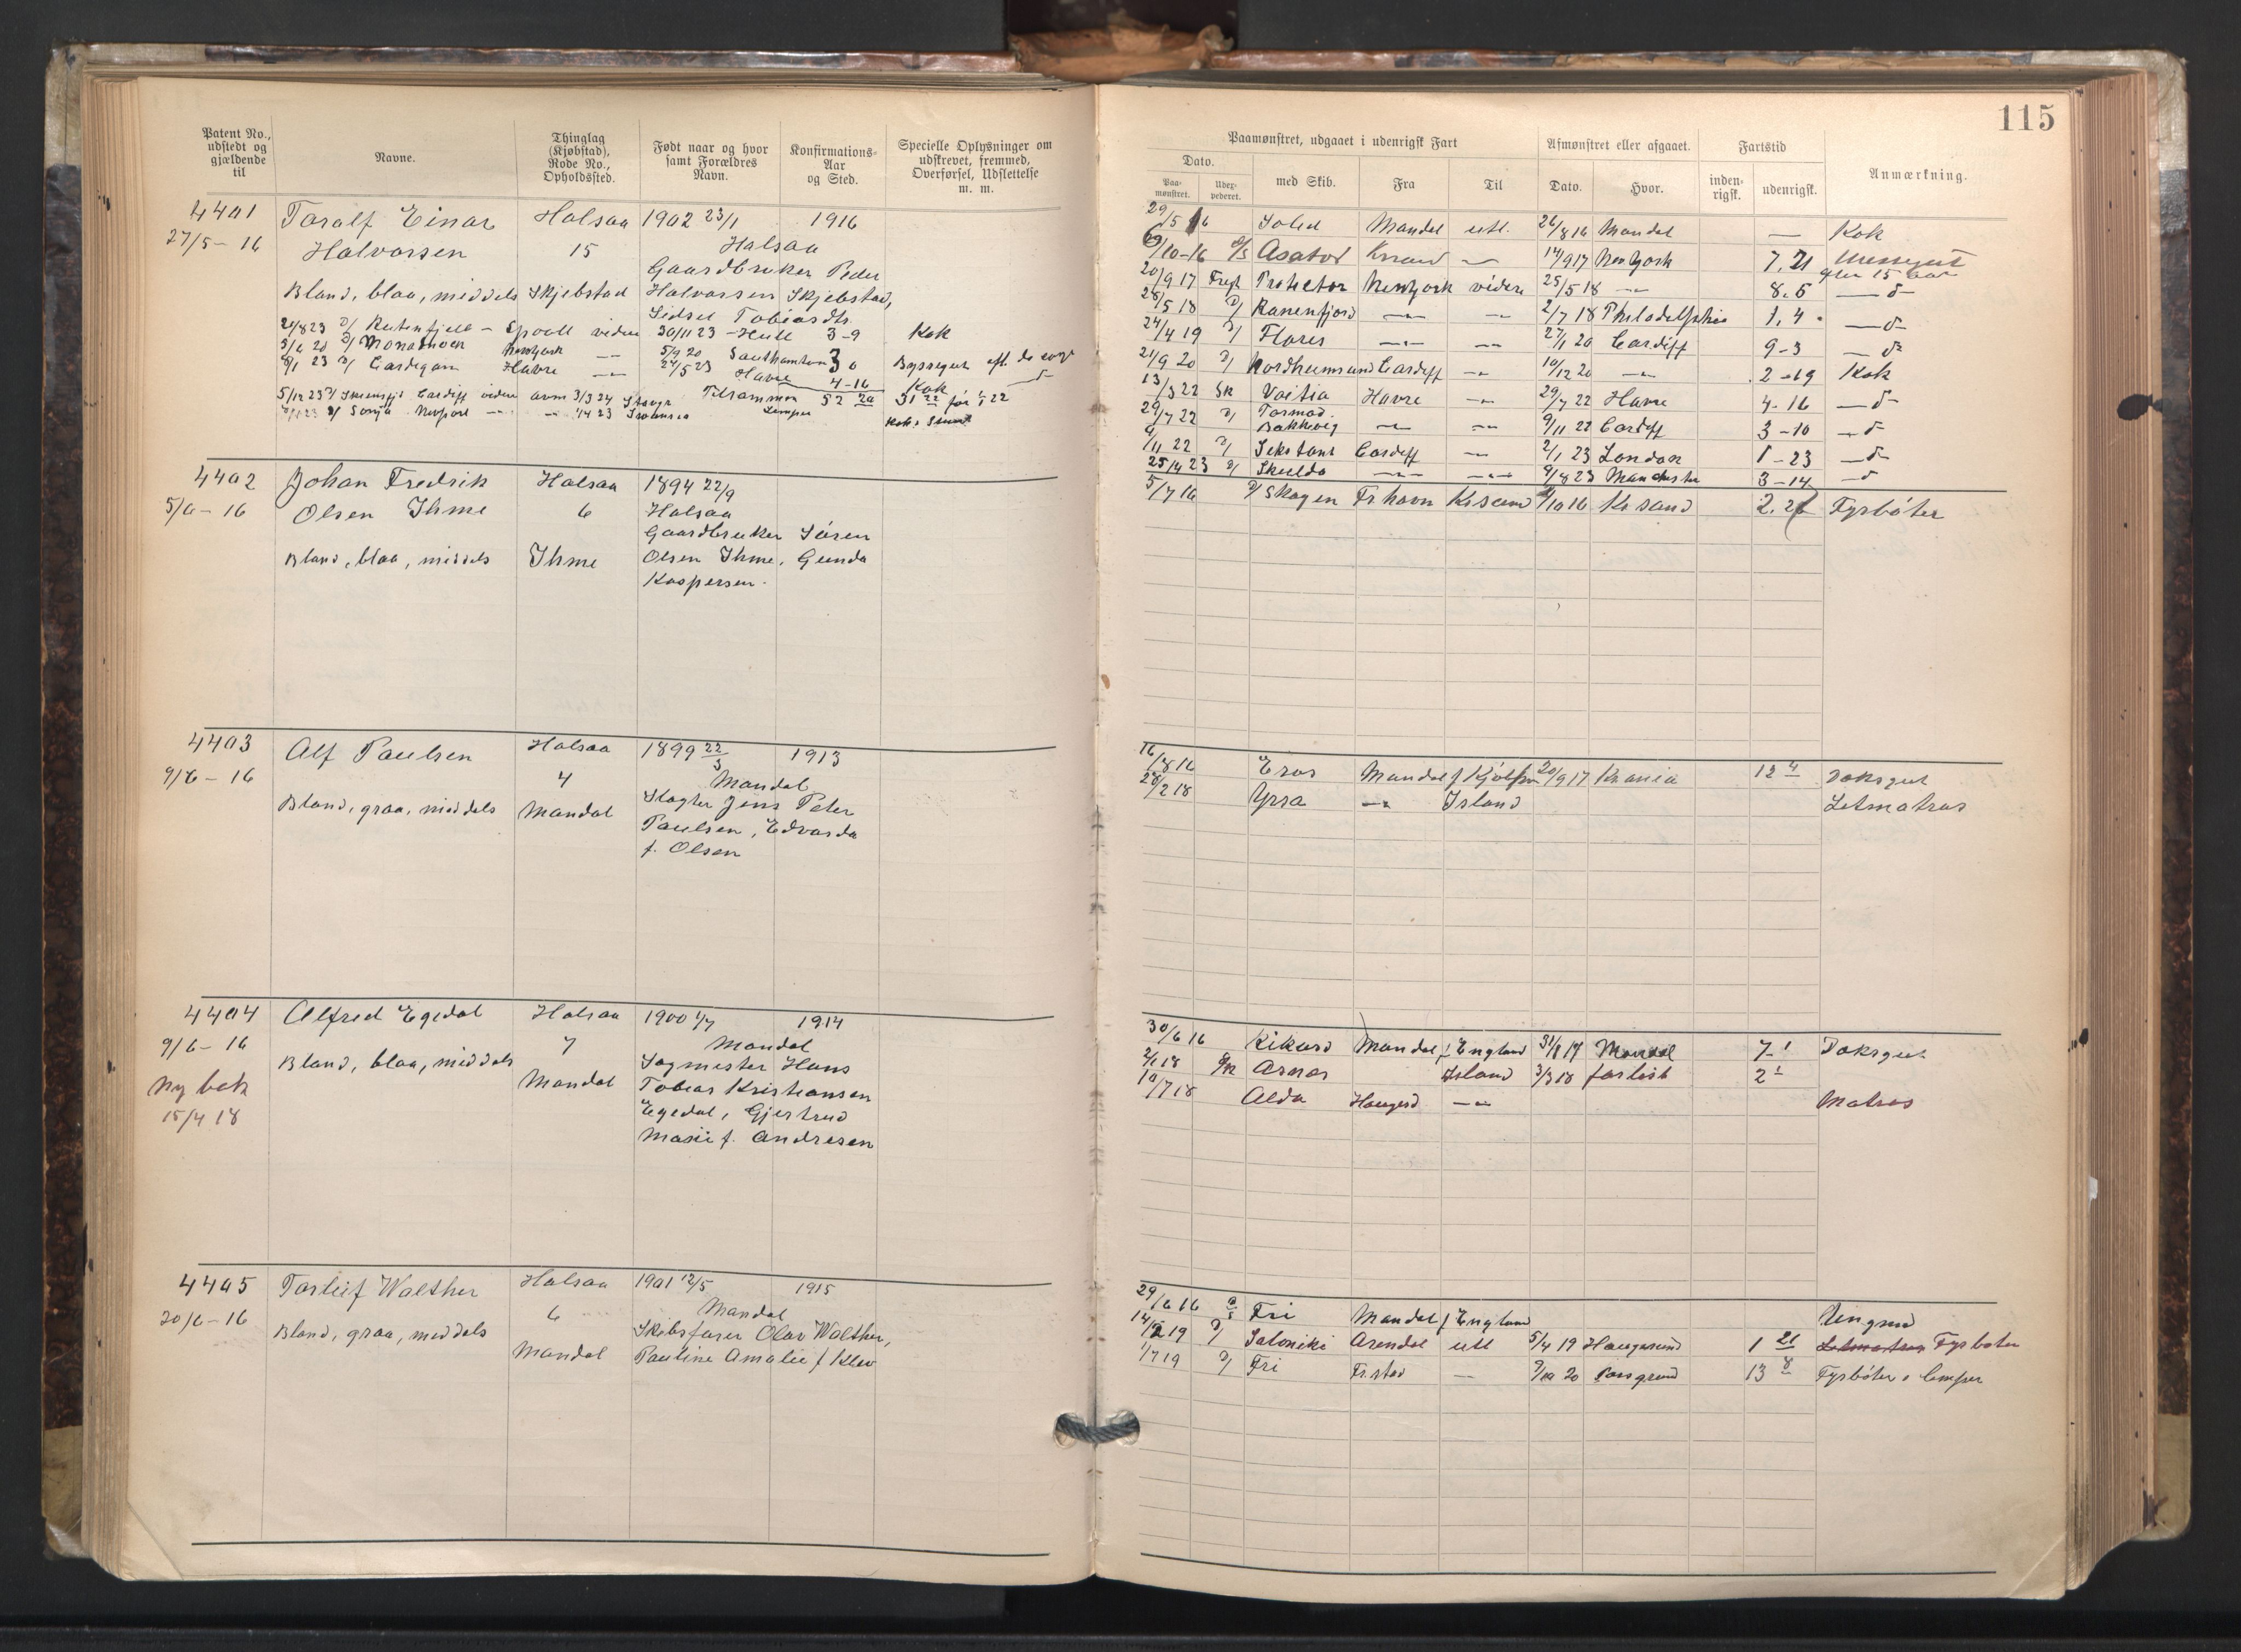 115
Patent No., udstedt og gjældende til
Navne.
Thinglag (Kjøbstad), Rode No., Opholdssted.
Født naar og hvor samt Forældres Navn.
Konfirmations-Aar og Sted.
Specielle Oplysninger om udskrevet, fremmed, Overførsel, Udslettelse m. m.
Paamønstret, udgaaet i udenrigsk Fart
Afmønstret eller afgaaet.
Fartstid
Anmærkning.
Dato.
Paa-mønstret.
Udex-pederet.
med Skib.
Fra
Til
Dato.
Hvor.
inden-rigsk.
udenrigsk.
4401 Toralf Einar Halsaa 1902 23/1 1916
27/5 - 16 Halvorsen 15 Halsaa
Gaardbruker Peder
Blond, blaa, middels Skjebstad Halvorsen Skjebstad,
Sidsel Tobiasdtr.
viden 30/11 23 - Hull 3-9 Kok
Newyork 5/9 20 Southamton
9/1 23 D/ Cardigan Havre 24/5 23 Havre 4-16 Kok
5/12 23 D/ Cardiff viden 3/3 24 Tilsammen 52 20 31 22 før 1/5 22
D/ Sonja Newport 23 Swansea Lemper
29/5 16 Mandel utl. 26/8 16 Mandal — Kok
/10-16 D/S Asator 14/9 17 New York 7. 21
20/9 17 Newyork videre 25/5 18 —"— 8. 5 —d—
28/5 18 D/ Ranenfjord —"— —"— 2/7 18 Philadelphia 1. 4 —d—
24/4 19 D/ Flores —"— —"— 27/1 20 Cardiff 9-3 —d—
21/9 20 D/ Nordheimsund Cardiff —"— 10/12 20 —"— 2-19 Kok
13/3 22 Sk Voitia Havre —"— 29/7 22 Havre 4-16 —d—
29/7 22 D/ Tormod Bakkevig —"— —"— 9/11 22 Cardiff 3-10 —d—
9/11 22 D/ Sekstant Cardiff —"— 2/1 23 London 1-23 —d—
25/4 23 D/ Skulda —"— —"— 9/8 23 Manchester 3-14 —d
4402 Johan Fredrik Halsaa 1894 22/9
5/6 - 16 Olsen Ihme 6 Halsaa
Gaardbruker Sören
Blond, blaa, middels Ihme Olsen Ihme, Gunda
Kaspersen.
5/7 16 D/ Skagen Fr havn Kr sand /10 16 Kr sand Fyrbøter
4403 Alf Paulsen Halsaa 1899 22/3 1913
9/6 - 16 4 Mandal
Blond, graa, middels Mandal Slagter Jens Peter
Paulsen, Edvarda
f. Olsen
16/8 16 Eros Mandal 20/9 17 Krania 12 4 Doksgut
28/2 18 Yrsa —"— Island Letmatros
4404 Alfred Egedal Halsaa 1900 1/7 1914
9/6 - 16 7 Mandal
Blond, blaa, middels Sagmester Hans
Ny bok Mandal Tobias Kristiansen
15/4 18 Egedal, Gjertrud
Marie f. Andresen
30/6 16 Rikard Mandal f England 31/8 17 Mandal 7- 1 Doksgut
2/1 18 Island 3/3 18 forlist 2 1
10/7 18 Alda Haugesd —"— Matros
4405 Torleif Walther Halsaa 1901 12/5 1915
20/6 - 16 6 Mandal
Blond, graa, middels Skibsfører Olav Walther,
Mandal Pauline Amalie f Klev
29/6 16 D/S Fri Mandal f England Ungmd
14/2 19 D/ Saloniki Arendal utl 5/4 19 Haugesund 1 21 Letmatros Fyrbøter
1/7 19 D/ Fri Fr.stad — 9/10 20 Porsgrund 13 8 Fyrbøter o lemper